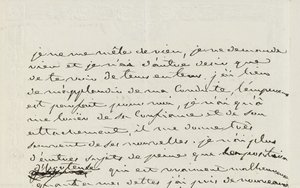 je ne me mêle de rien, je ne demande
rien et je n'ai d'autre désir que
de te voir de tems en tems. j'ai lieu
de m'applaudir de ma conduite, l'empereur
est parfait pour moi, je n'ai qu'à
me louer de sa confiance et de son
attachement, il me donne très
souvent de ses nouvelles. je n'ai plus
d'autres sujets de peines que
qui est vraiment malheureuse
mes dettes j'ai près de nouveau